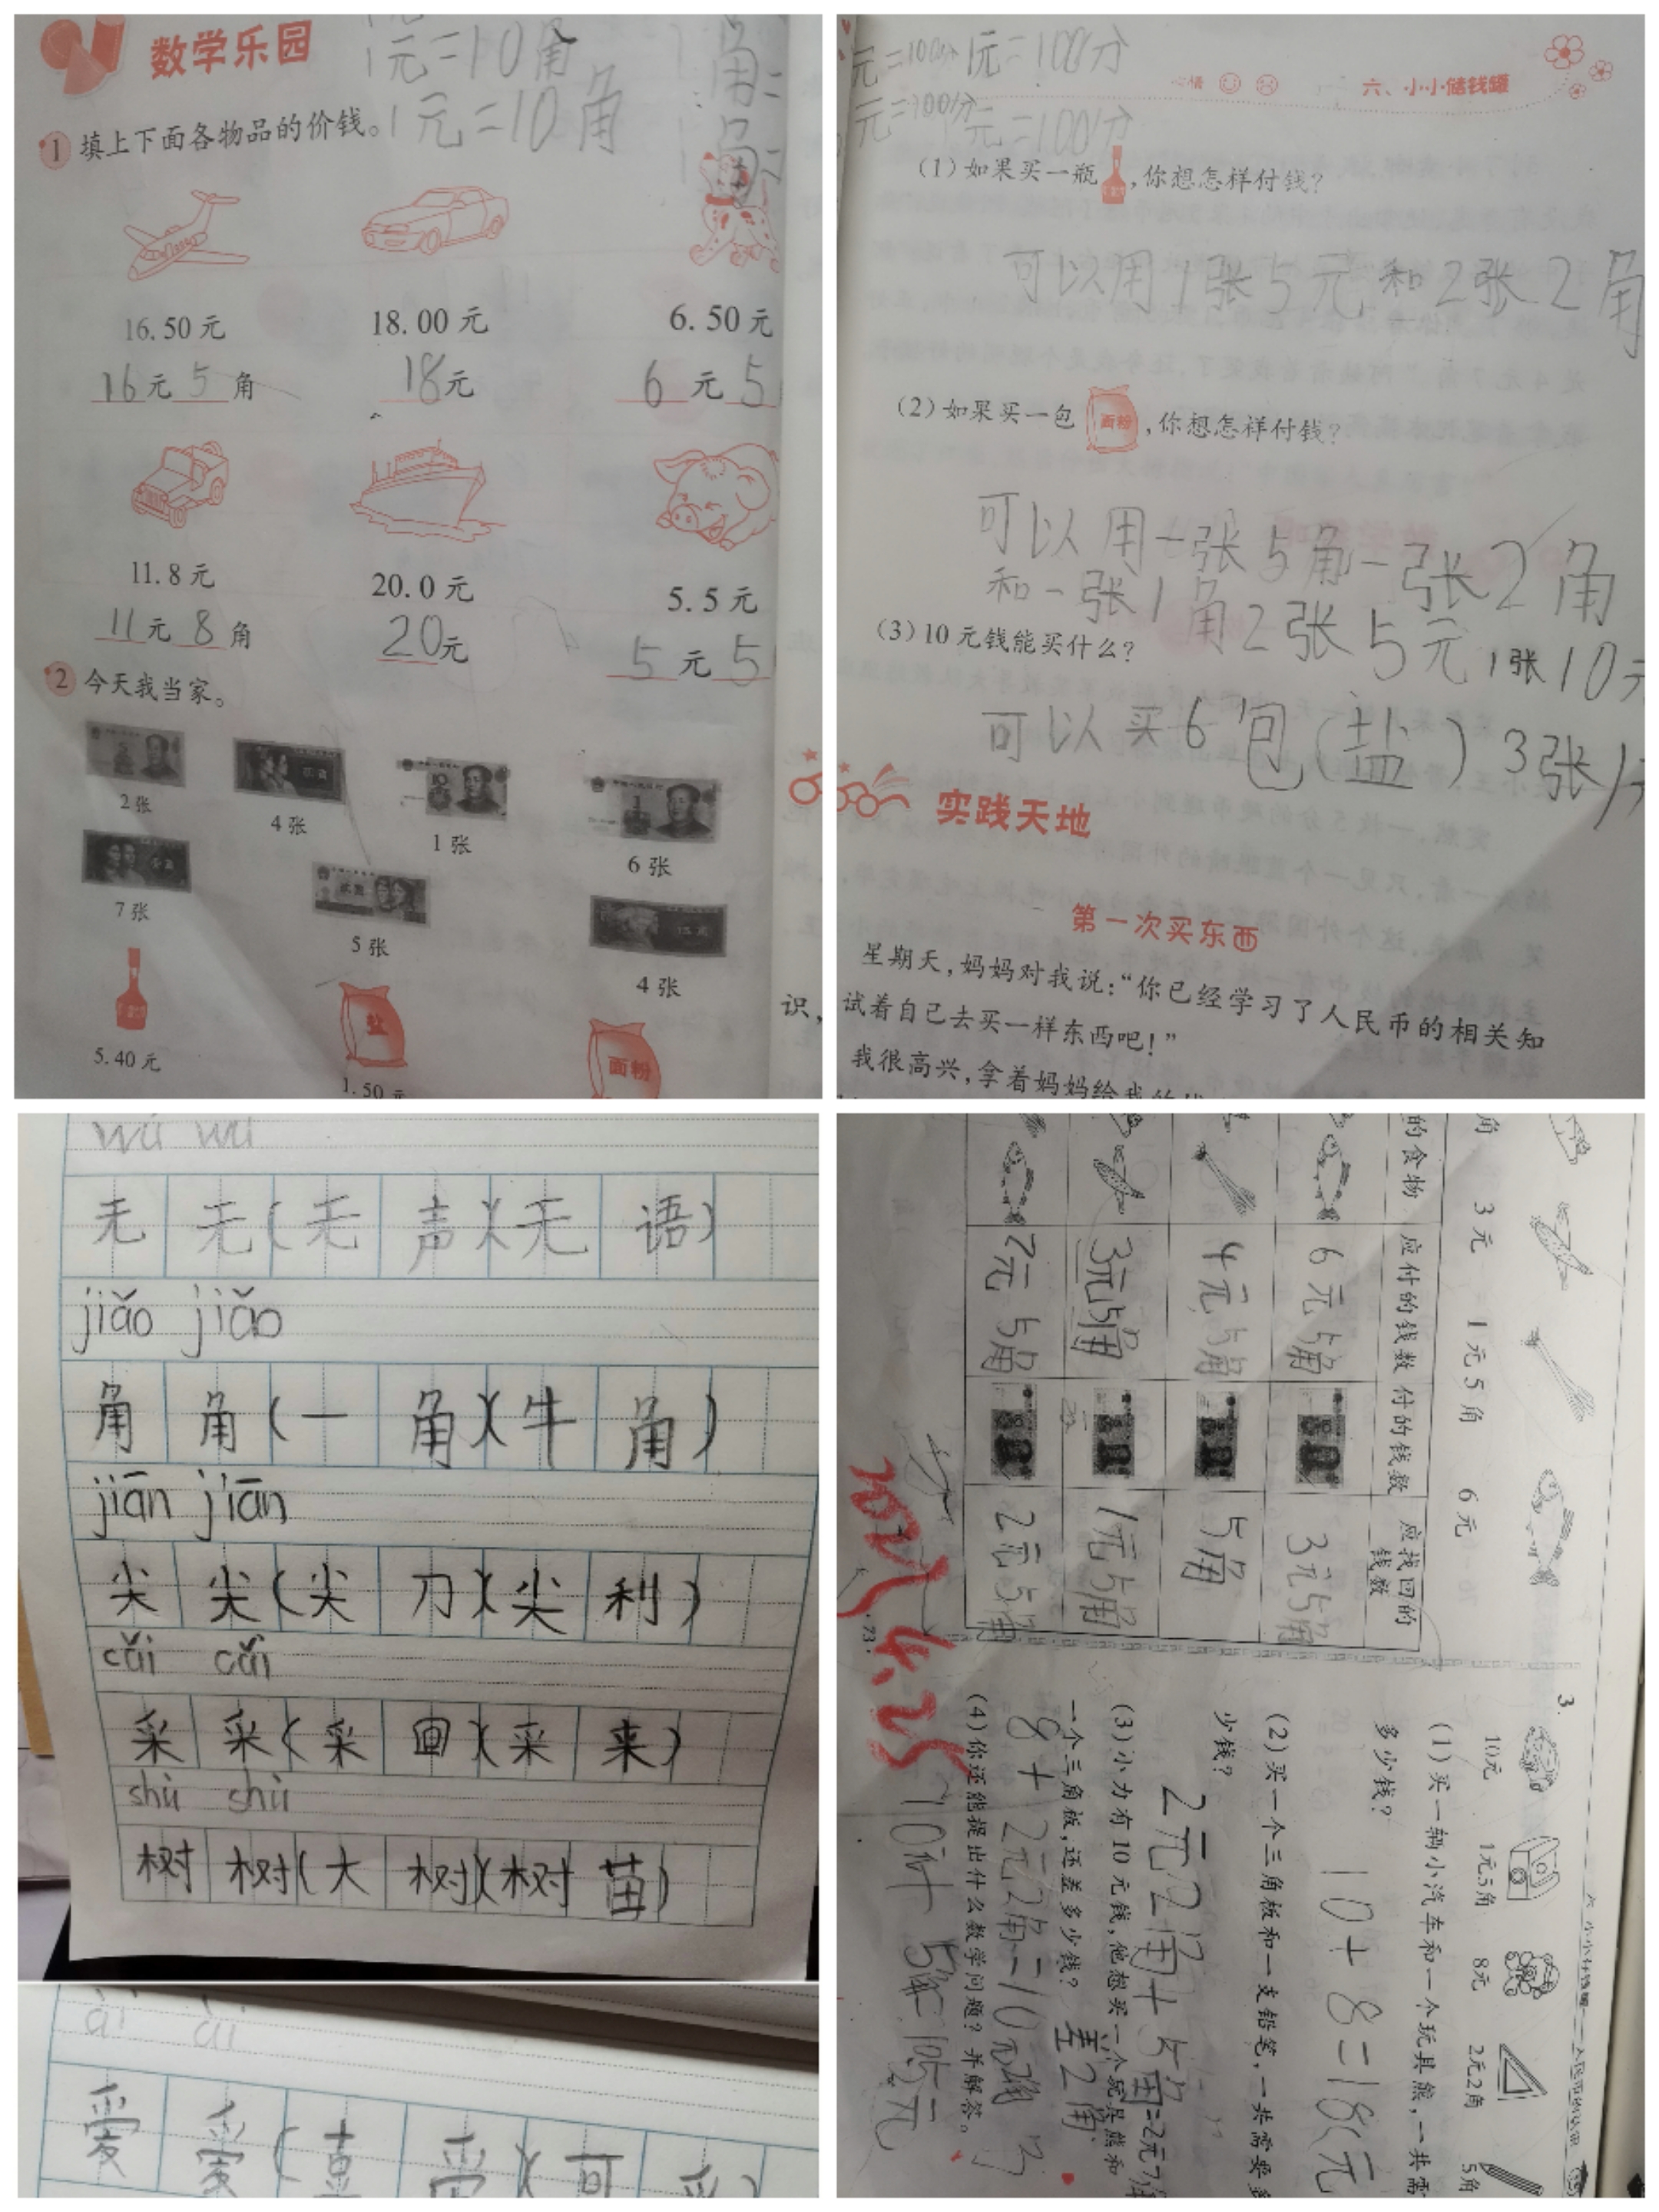 数学乐园
1元=10角
1元=10角
1 填上下面各物品的价钱。
16.50元 18.00元 6.50元
16元5角 18元 6元5
11.8元 20.0元 5.5元
11元8角 20元 5元5
2 今天我当家。
2张 4张 1张 6张
7张 5张 4张
盐 面粉
5.40元 1.50元
元=100分 1元=100分
元=100分 元=100分
心情 六、小小储钱罐
(1)如果买一瓶 ,你想怎样付钱?
可以用1张5元和2张2角
(2)如果买一包 面粉 ,你想怎样付钱?
可以用一张5角一张2角
和一张1角2张5元,1张10元
(3)10元钱能买什么?
可以买6包(盐)3张1元
实践天地
第一次买东西
星期天,妈妈对我说:“你已经学习了人民币的相关知
识,试着自己去买一样东西吧!”
我很高兴,拿着妈妈给我的钱
wú wú
无 无(无声)(无语)
jiǎo jiǎo
角 角(一角)(牛角)
jiān jiān
尖 尖(尖刀)(尖利)
cǎi cǎi
采 采(采回)(采来)
shù shù
树 树(大树)(树苗)
ài ài
爱 爱(喜爱)(可爱)
角 3元 1元5角 6元
的食物 应付的钱数 付的钱数 应找回的钱数
6元5角 3元5角
4元5角 5角
3元5角 1元5角
7元5角 2元5角
73
3.
10元 1元5角 8元 2元2角 5角
(1)买一辆小汽车和一个玩具熊,一共需
多少钱?
10+8=18(元
(2)买一个三角板和一支铅笔,一共需要多
少钱?
2元2角+5角=2元7角
(3)小力有10元钱,他想买一个玩具熊和
一个三角板,还差多少钱? 差2角
8+2元2角=10元2角
(4)你还能提出什么数学问题?并解答。